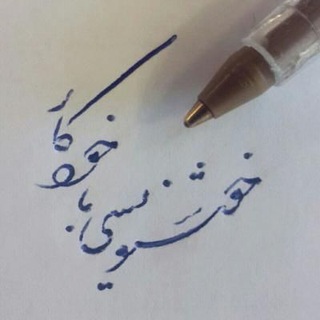 خوشنویسی با خودکار